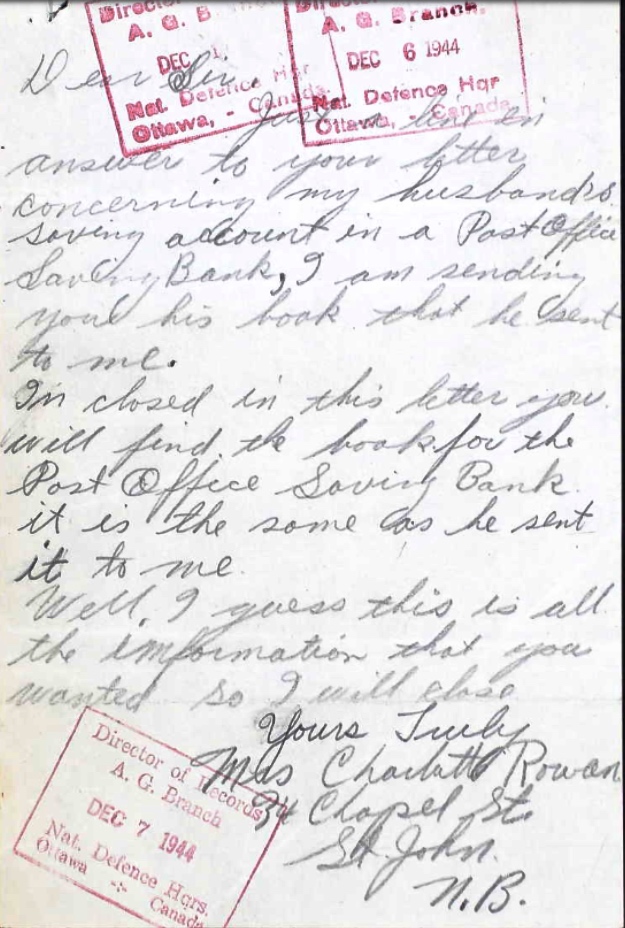 Director
A. G. B
DEC
Nat. Defence Hqr
Ottawa, - Canada.
A. G. Branch.
DEC 6 1944
Nat. Defence Hqr
Ottawa, - Canada
Dear Sir,
Just a line in
answer to your letter
concerning my husband's
saving account in a Post Office
Saving Bank, I am sending
you his book that he sent
to me.
In closed in this letter you
will find the book for the
Post Office Saving Bank
it is the same as he sent
it to me.
Well, I guess this is all
the imformation that you
wanted so I will close
Yours Truly
Mrs Charlotte Rowan
34 Chapel St.
St John.
N.B.
Director of Records
A. G. Branch
DEC 7 1944
Nat. Defence Hqrs.
Ottawa -:- Canada